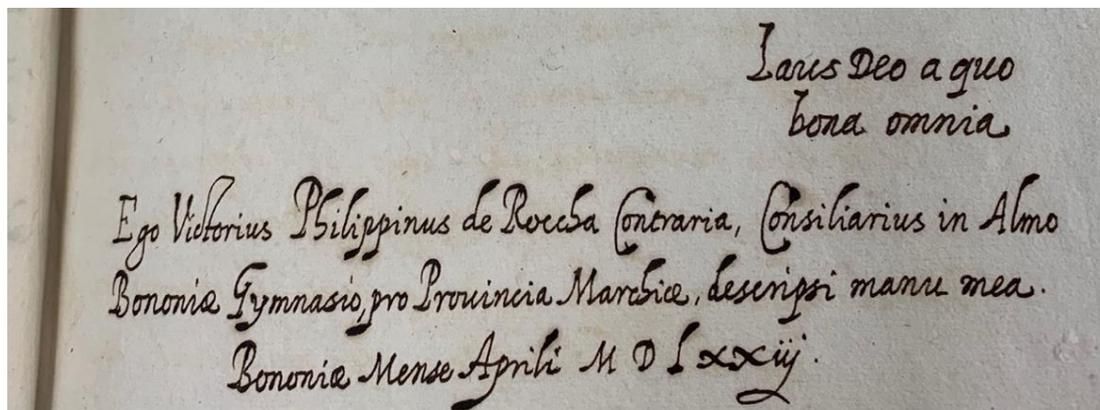 Laus Deo a quo
bona omnia
Ego Victorius Philippinus de Roccha Contraria, Consiliarius in Almo
Bononiæ Gymnasio, pro Prouincia Marchiæ, descripsi manu mea.
Bononiæ Mense Aprili M D Lxxiij.